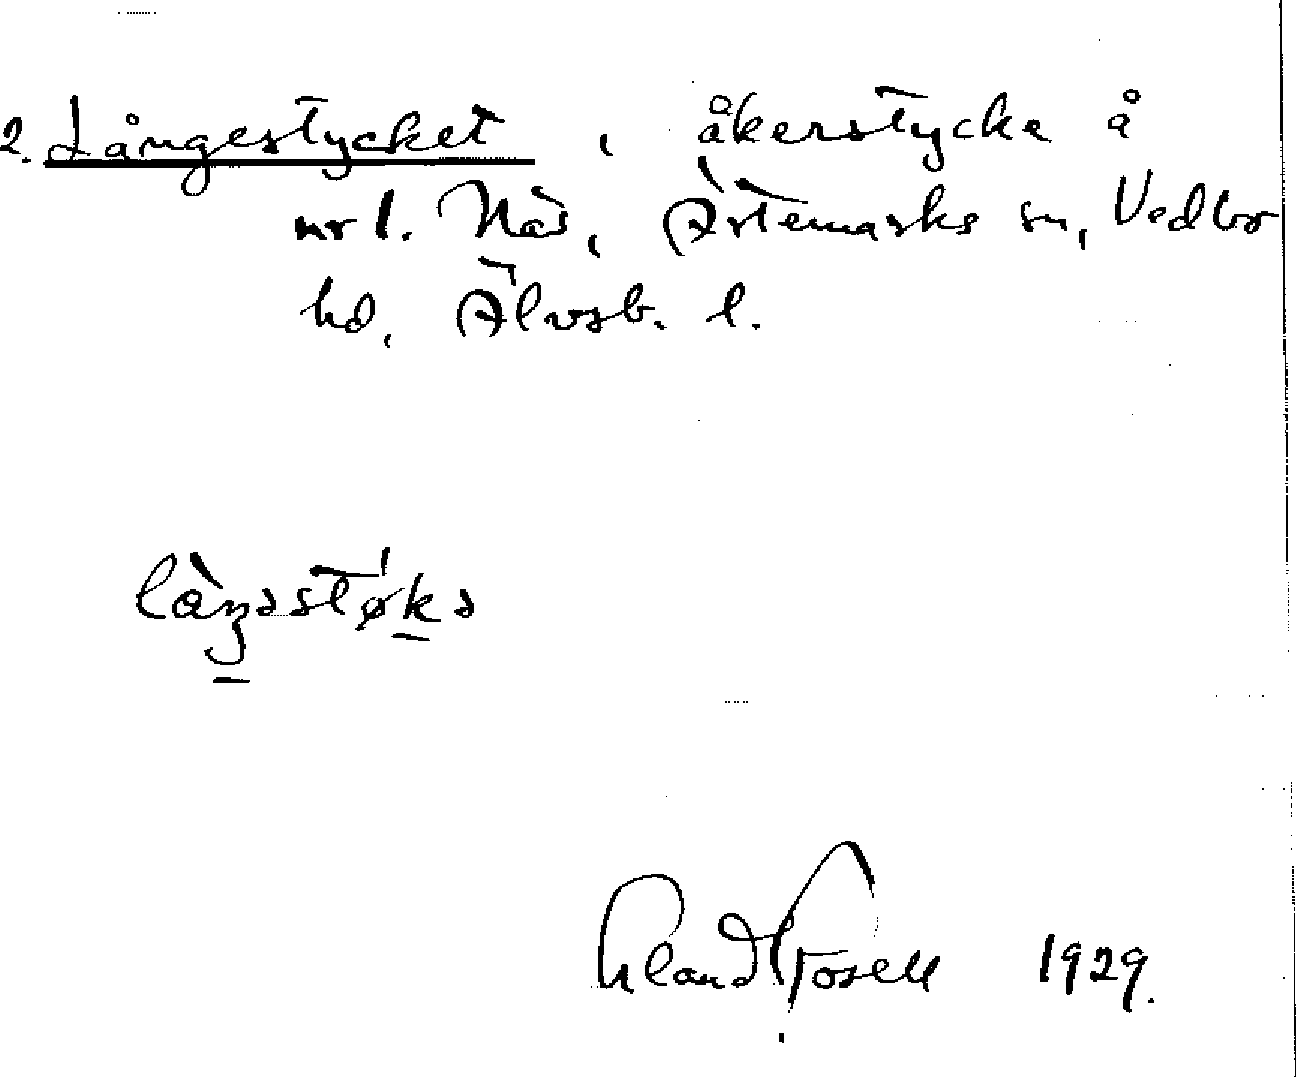 2. Långestycket, åkerstycke å
nr 1. Näs, Ärtemarks sn, Vedbo
hd, Älvsb. l.
Erland Rosell 1929.